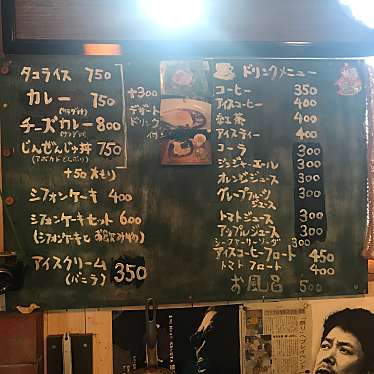 タコライス 750
カレー 750
(サラダ付)
チーズカレー 800
(サラダ付)
じんぜんじゅ丼 750
(アボカドどんぶり)
+50 大もり
+300
デザート
ドリンク
付
シフォンケーキ 400
シフォンケーキセット 600
(シフォンケーキと お飲み物)
アイスクリーム 350
(バニラ)
ドリンクメニュー
コーヒー 350
アイスコーヒー 400
紅茶 400
アイスティー 400
コーラ 300
ジンジャーエール 300
オレンジジュース 300
グレープフルーツ
ジュース 300
トマトジュース 300
アップルジュース 300
シークヮーサーソーダ 300
アイスコーヒーフロート 450
トマト フロート 400
お風呂 500